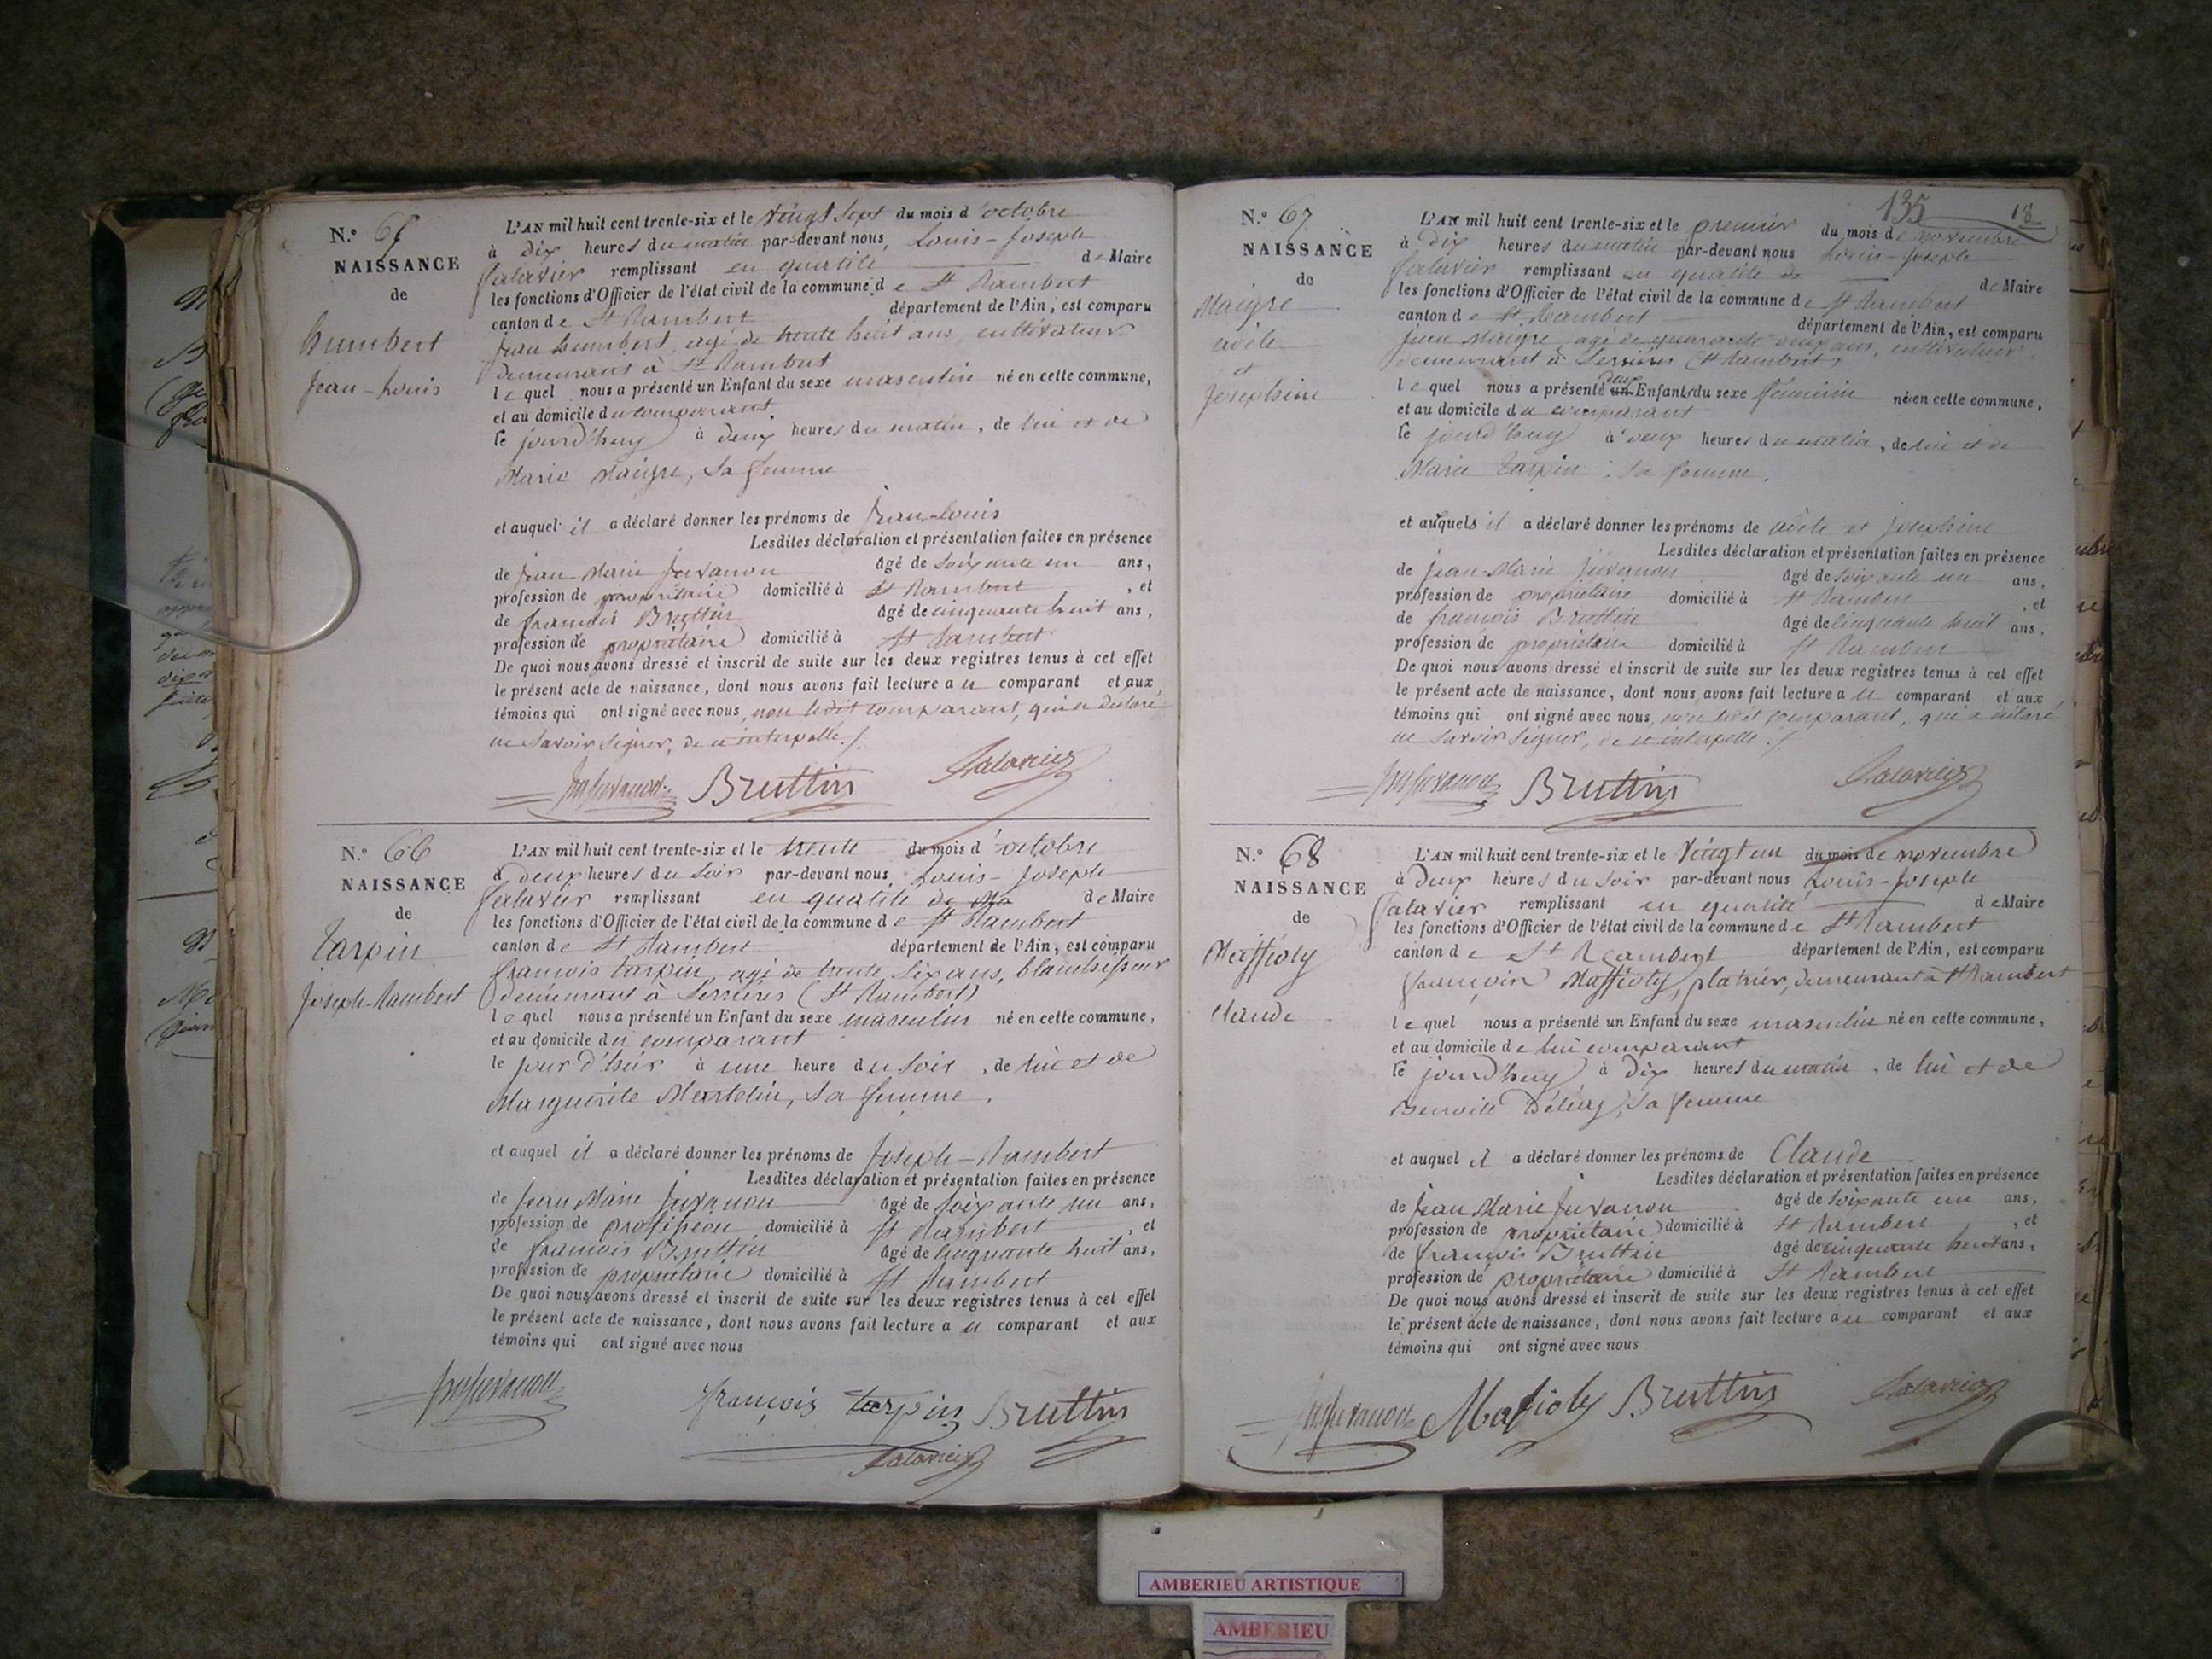 N.º 65
NAISSANCE
de
humbert
Jean-Louis
L'AN mil huit cent trente-six et le vingt Sept du mois d'octobre
à Dix heures du matin par-devant nous, Louis-Joseph
falavier remplissant en qualité de Maire
les fonctions d'Officier de l'état civil de la commune de St Rambert
canton de St Rambert département de l'Ain, est comparu
Jean humbert, agé de trente huit ans, cultivateur
demeurant à St Rambert
lequel nous a présenté un Enfant du sexe masculin né en cette commune,
et au domicile du comparant
le jourd'huy à deux heures du matin, de lui et de
Marie Maigre, Sa femme
et auquel il a déclaré donner les prénoms de Jean-Louis
Lesdites déclaration et présentation faites en présence
de Jean-Marie Juvanon âgé de Soixante un ans,
profession de propriétaire domicilié à St Rambert, et
de françois Bruttin âgé de cinquante huit ans,
profession de propriétaire domicilié à St Rambert
De quoi nous avons dressé et inscrit de suite sur les deux registres tenus à cet effet
le présent acte de naissance, dont nous avons fait lecture au comparant et aux
témoins qui ont signé avec nous, non ledit comparant, qui a déclaré
ne Savoir Signer, de ce interpellé ./.
Juvanon Bruttin falavier
N.º 66
NAISSANCE
de
Tarpin
Joseph-Rambert
L'AN mil huit cent trente-six et le trente du mois d'octobre
à deux heures du Soir par-devant nous Louis-Joseph
falavier remplissant en qualité de de Maire
les fonctions d'Officier de l'état civil de la commune de St Rambert
canton de St Rambert département de l'Ain, est comparu
françois tarpin, agé de trente Six ans, blanchisseur
demeurant à Serrières (St Rambert)
lequel nous a présenté un Enfant du sexe masculin né en cette commune,
et au domicile du comparant
le jour d'hier à une heure du Soir, de lui et de
Marguerite Martelin, Sa femme,
et auquel il a déclaré donner les prénoms de Joseph-Rambert
Lesdites déclaration et présentation faites en présence
de Jean Marie Juvanon âgé de Soixante un ans,
profession de domicilié à St Rambert, et
de françois Bruttin âgé de Cinquante huit ans,
profession de propriétaire domicilié à St Rambert
De quoi nous avons dressé et inscrit de suite sur les deux registres tenus à cet effet
le présent acte de naissance, dont nous avons fait lecture au comparant et aux
témoins qui ont signé avec nous
Juvanon françois tarpin Bruttin
falavier
135 18
N.º 67
NAISSANCE
de
Maigre
adèle
et
Joséphine
L'AN mil huit cent trente-six et le premier du mois de novembre
à Dix heures du matin par-devant nous Louis-Joseph
falavier remplissant en qualité de de Maire
les fonctions d'Officier de l'état civil de la commune de St Rambert
canton de St Rambert département de l'Ain, est comparu
Jean Maigre, agé de quarante deux ans, cultivateur
demeurant à Serrières (St Rambert)
lequel nous a présenté un deux Enfants du sexe féminin né en cette commune,
et au domicile du comparant
le jourd'huy à deux heures du matin, de lui et de
Marie Tarpin, Sa femme.
et auquels il a déclaré donner les prénoms de adèle et Joséphine
Lesdites déclaration et présentation faites en présence
de Jean-Marie Juvanon âgé de Soixante un ans,
profession de propriétaire domicilié à St Rambert, et
de françois Bruttin âgé de Cinquante huit ans,
profession de propriétaire domicilié à St Rambert
De quoi nous avons dressé et inscrit de suite sur les deux registres tenus à cet effet
le présent acte de naissance, dont nous avons fait lecture au comparant et aux
témoins qui ont signé avec nous, non ledit comparant, qui a déclaré
ne Savoir Signer, de ce interpellé ./.
Juvanon Bruttin falavier
N.º 68
NAISSANCE
de
Maffioly
Claude
L'AN mil huit cent trente-six et le Vingt un du mois de novembre
à Deux heures du Soir par-devant nous Louis-Joseph
falavier remplissant en qualité de Maire
les fonctions d'Officier de l'état civil de la commune de St Rambert
canton de St Rambert département de l'Ain, est comparu
françois Maffioly, platrier, demeurant à St Rambert
lequel nous a présenté un Enfant du sexe masculin né en cette commune,
et au domicile de lui comparant
le jourd'huy à Dix heures du matin, de lui et de
Benoite Sa femme
et auquel il a déclaré donner les prénoms de Claude
Lesdites déclaration et présentation faites en présence
de Jean Marie Juvanon âgé de Soixante un ans,
profession de propriétaire domicilié à St Rambert, et
de françois Bruttin âgé de cinquante huit ans,
profession de propriétaire domicilié à St Rambert
De quoi nous avons dressé et inscrit de suite sur les deux registres tenus à cet effet
le présent acte de naissance, dont nous avons fait lecture au comparant et aux
témoins qui ont signé avec nous
Juvanon Mafioly Bruttin falavier
AMBERIEU ARTISTIQUE
AMBERIEU